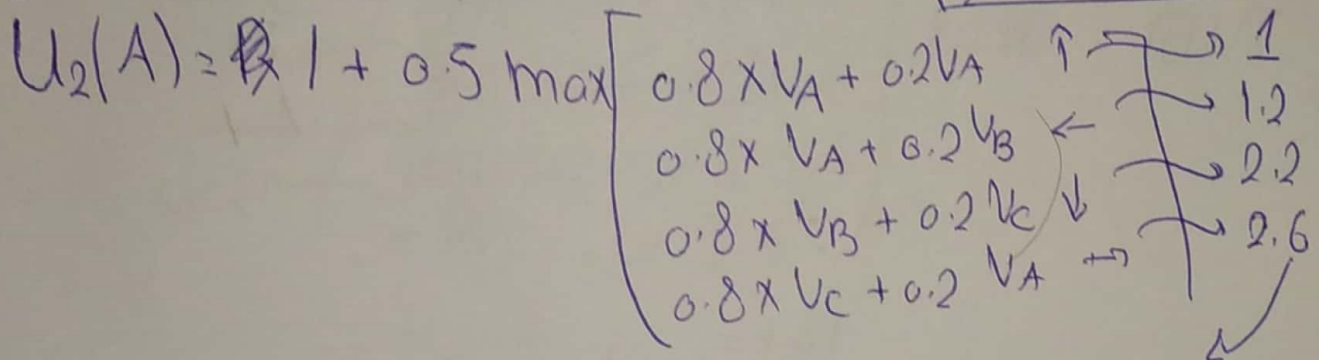 U₂(A) = 1 + 0.5 max [ 0.8 x VA + 0.2VA ↑ → 1
0.8 x VA + 0.2 VB ← → 1.2
0.8 x VB + 0.2 VC ↓ → 2.2
0.8 x VC + 0.2 VA → → 2.6